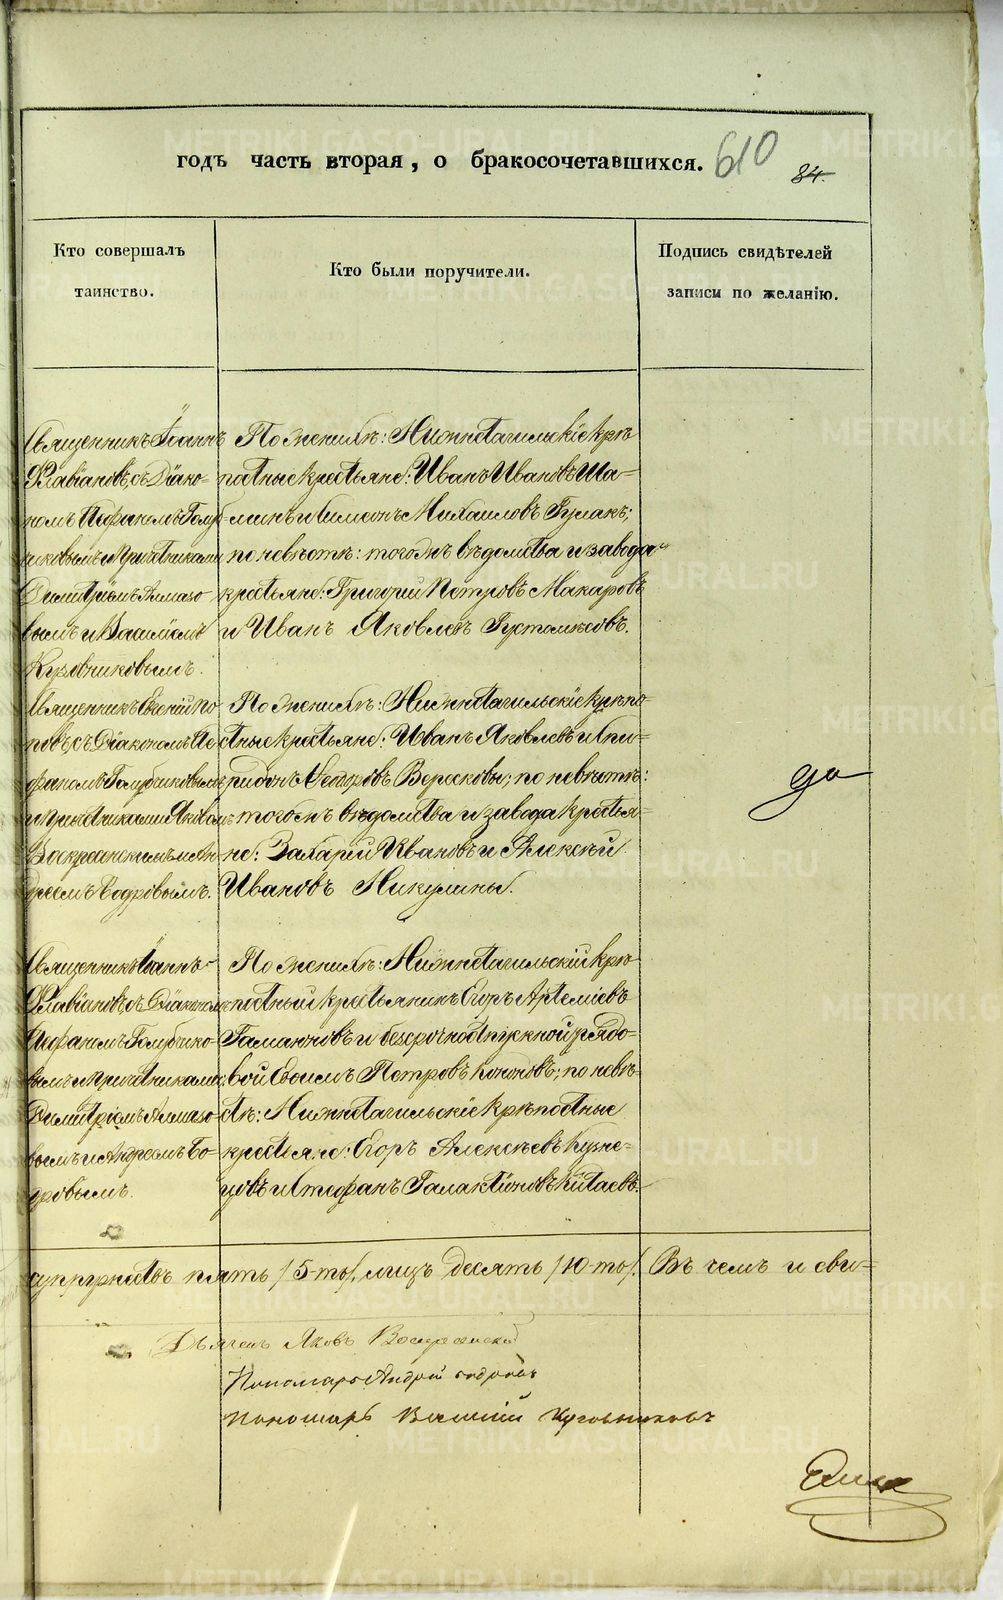 годъ часть вторая, о бракосочетавшихся. 610 84.
Кто совершалъ
таинство.
Кто были поручители.
Подпись свидѣтелей
записи по желанію.
Священникъ Іоаннъ
Флавіановъ, съ Діако-
номъ
чиковымъ и причетниками
Димитріемъ Алмазо
вымъ и Василіемъ
Кузовниковымъ.
По женихѣ: Нижнетагильскіе крѣ
постные крестьяне: Иванъ Ивановъ Ша-
минъ и Симеонъ Михаиловъ Гулакъ;
по невѣстѣ: тогожъ вѣдомства и завода
крестьяне: Григорій Петровъ Макаровъ
и Иванъ Яковлевъ Густомѣсовъ.
Священникъ Евгеній По
повъ, съ Діакономъ Ие
фаномъ Голубчиковымъ
и причетниками Яковомъ
Воскресенскимъ и Ан-
дреемъ Бодровымъ.
По женихѣ: Нижнетагильскіе крѣпо
стные крестьяне: Иванъ Яковлевъ и Спи-
ридонъ Ѳеодоровъ Вересковы; по невѣстѣ:
тогожъ вѣдомства и завода крестья-
не: Захарій Ивановъ и Алексѣй
Ивановъ Никулины.
до
Священникъ Іоаннъ
Флавіановъ, съ Діакономъ
Голубчико-
вымъ и причетниками:
Димитріемъ Алмазо-
вымъ и Андреемъ Бо-
дровымъ.
По женихѣ: Нижнетагильскій крѣ
постный крестьянинъ Егоръ Артеміевъ
и безсрочноотпускной рядо-
вой Евсимъ Петровъ Кононовъ; по невѣ-
стѣ: Нижнетагильскіе крѣпостные
крестьяне: Егоръ Алексѣевъ Кузне-
цовъ и Стефанъ Галактіоновъ Китаевъ.
супружествъ пять /5-ть/, лицъ десять /10-ть/. Въ чемъ и сви-
Дьячекъ Яковъ Воскресенскій
Пономарь Андрей Бодровъ
Пономарь Василій Кузовниковъ